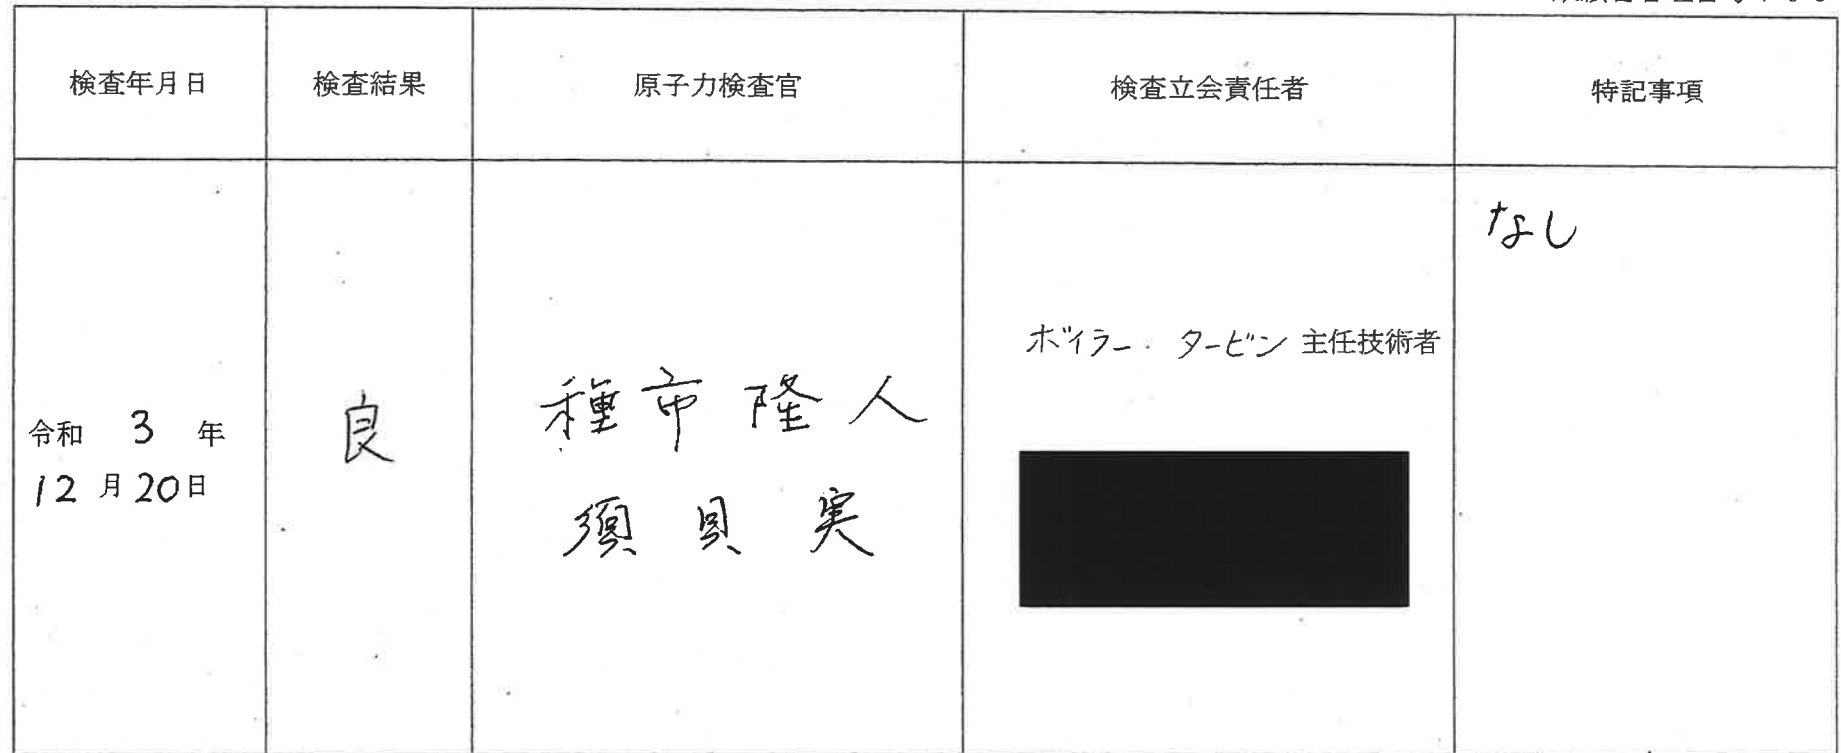 検査年月日
検査結果
原子力検査官
検査立会責任者
特記事項
令和 3 年
12月20日
良
種市隆人
須貝実
ボイラー・タービン主任技術者
なし